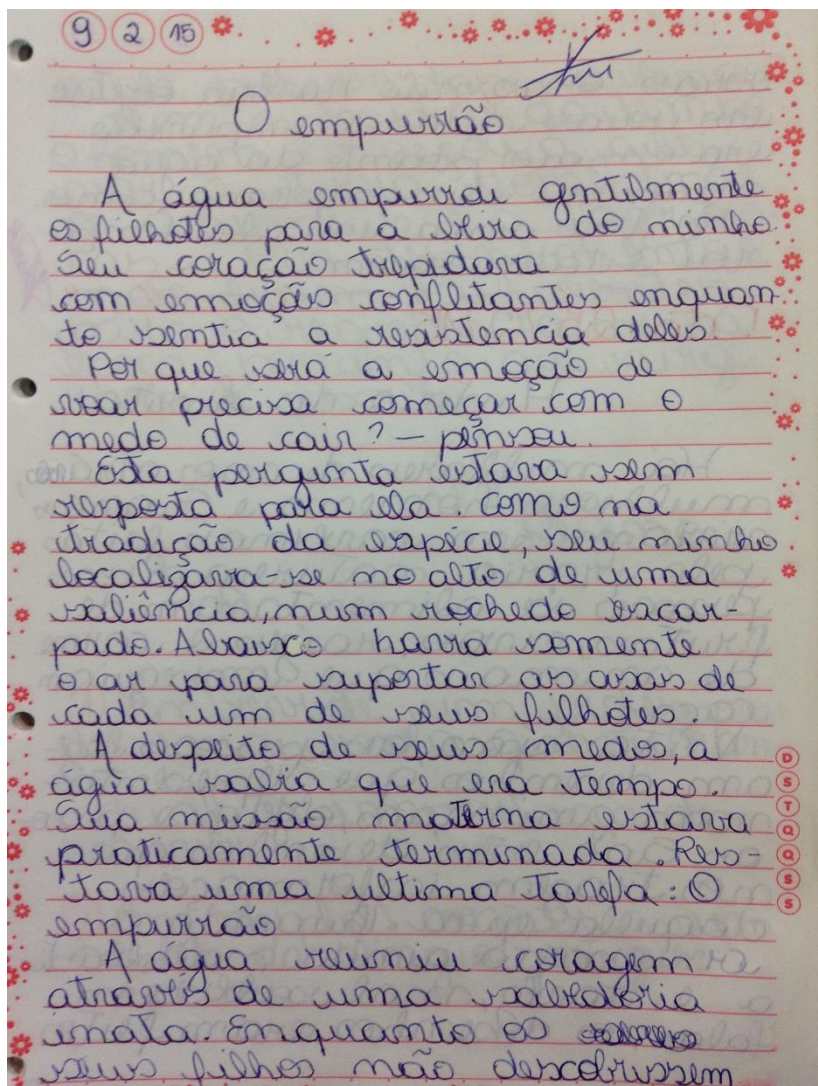 9 2 15
O empurrão
A água empurrou gentilmente
os filhotes para a beira do ninho.
Seu coração trepidava
com emoções conflitantes enquan-
to sentia a resistencia deles.
Por que será a emoção de
voar precisa começar com o
medo de cair? — pensou.
Esta pergunta estava sem
resposta para ela. Como na
tradição da espécie, seu ninho
localizava-se no alto de uma
saliência, num rochedo escar-
pado. Abaixo havia somente
o ar para suportar as asas de
cada um de seus filhotes.
A despeito de seus medos, a
águia sabia que era tempo.
Sua missão materna estava
praticamente terminada. Res-
tava uma ultima tarefa: O
empurrão
A águia reuniu coragem
através de uma sabedoria
inata. Enquanto os
seus filhos não descobrissem
D
S
T
Q
Q
S
S